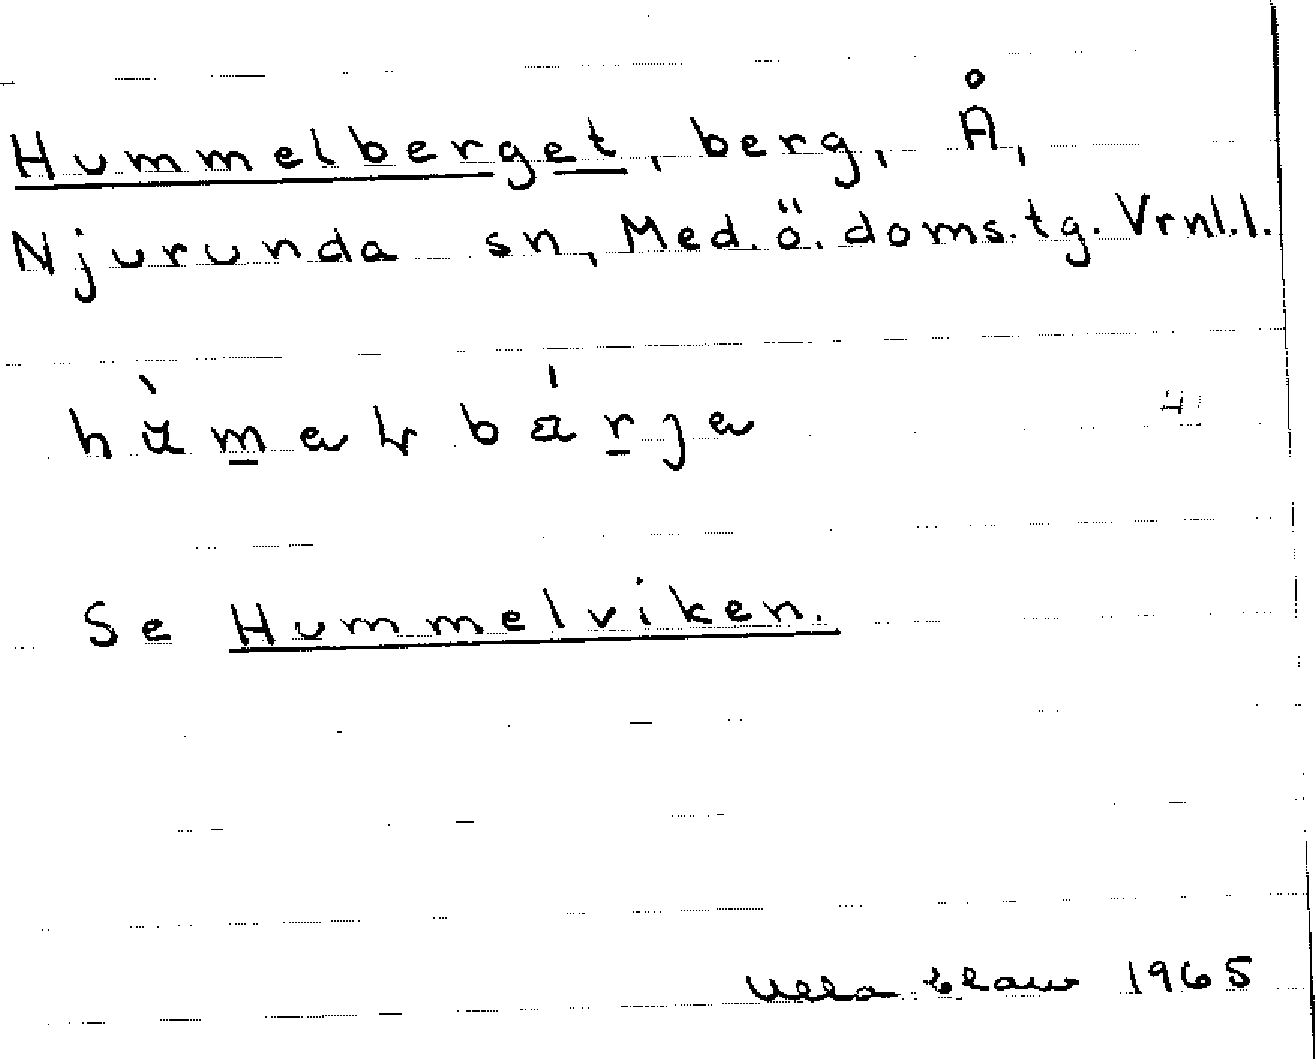 Hummelberget, berg, Å,
Njurunda sn, Med. ö. doms. tg. Vrnl. l.
4
Se Hummelviken.
Ulla 1965